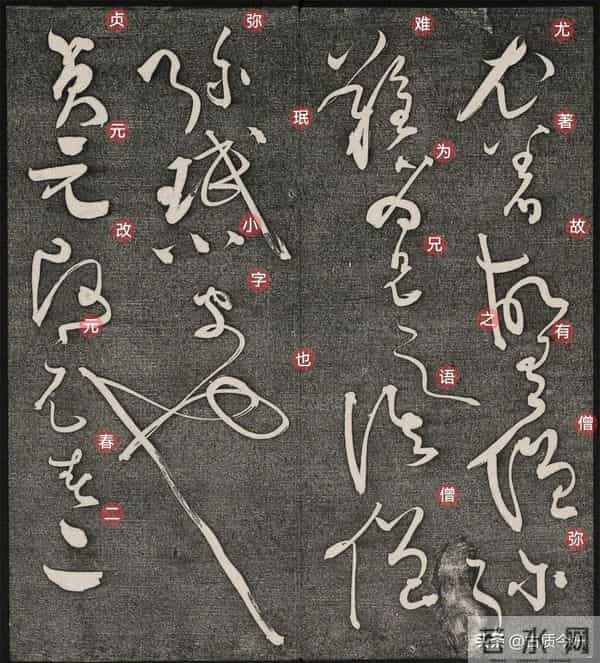 尤著故有僧弥
难为兄之语僧
弥珉小字也
贞元改元春二
头条 @古质今妍